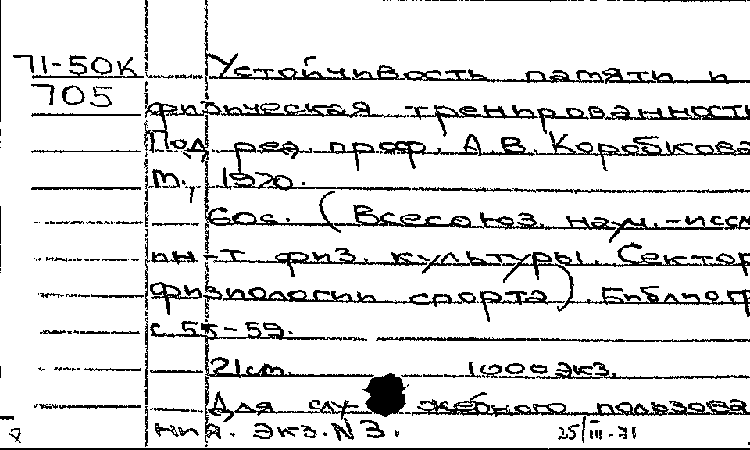 71-50К Устойчивость памяти и
705 физическая тренированность
Под ред. проф. А.В. Коробкова
М., 1970.
60с. (Всесоюз. науч.-иссл
ин-т физ. культуры. Сектор
физиологии спорта). Библиогр
с. 55-59.
21см. 1000экз.
Для слу- жебного пользова
ния. Экз.N3. 25/III-71